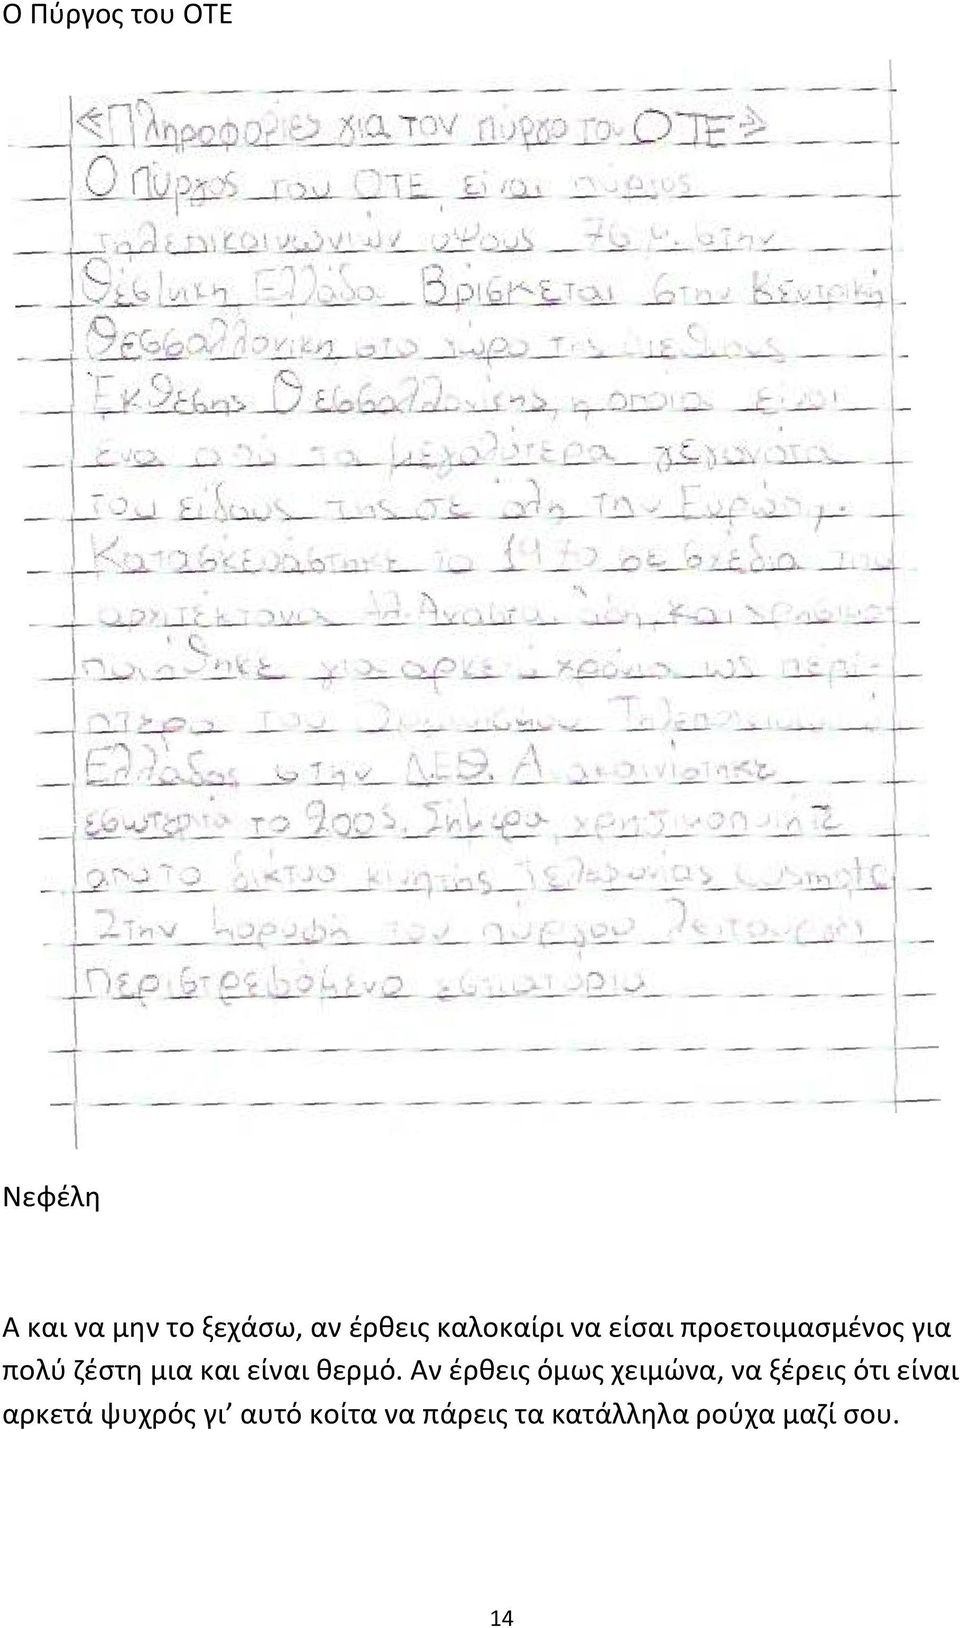 Ο Πύργος του ΟΤΕ
«Πληροφορίες για τον πύργο του ΟΤΕ»
Ο Πύργος του ΟΤΕ είναι πύργος
τηλεπικοινωνιών ύψους 76 μ. στην
Θέσ/νικη Ελλάδα. Βρίσκεται στην κεντρική
Θεσσαλλονίκη στο χώρο της Διεθνους
Έκθεσης Θεσσαλλονίκης, η οποία είναι
ένα από τα μεγαλύτερα γεγονότα
του είδους της σε όλη την Ευρώπη.
Κατασκευάστηκε το 1970 σε σχέδια του
αρχιτέκτονα Αλ. και χρησιμο-
ποιήθηκε για αρκετά χρόνια ως περί-
πτερο του
Ελλάδος στην Δ.Ε.Θ. Ανακαινίστηκε
εσωτερικά το 2005. Σήμερα χρησιμοποιήτε
από το δίκτυο κινητής τελεφωνίας cosmote
Στην κορυφή του πύργου λειτουργεί
περιστρεφόμενο εστιατόριο
Νεφέλη
Α και να μην το ξεχάσω, αν έρθεις καλοκαίρι να είσαι προετοιμασμένος για
πολύ ζέστη μια και είναι θερμό. Αν έρθεις όμως χειμώνα, να ξέρεις ότι είναι
αρκετά ψυχρός γι’ αυτό κοίτα να πάρεις τα κατάλληλα ρούχα μαζί σου.
14